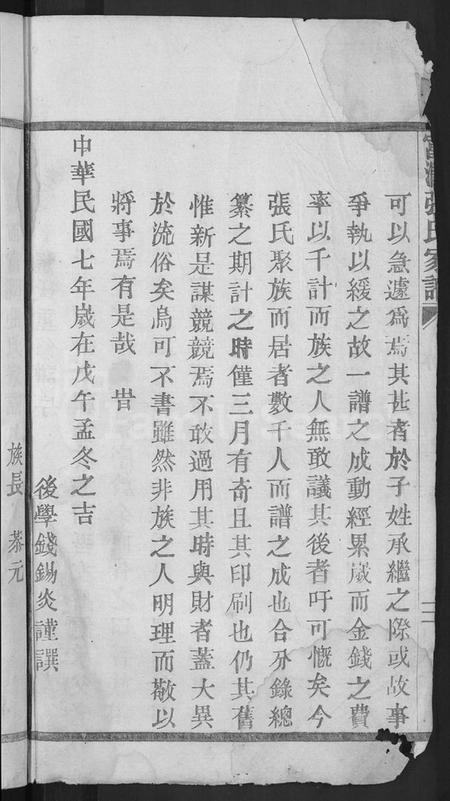 張氏家譜
三
可以急遽為焉其甚者於子姓承繼之際或故事
爭執以緩之故一譜之成動經累歲而金錢之費
率以千計而族之人無敢議其後者吁可慨矣今
張氏聚族而居者數千人而譜之成也合分錄總
纂之期計之時僅三月有奇且其印刷也仍其舊
惟新是謀競競焉不敢過用其時與財者蓋大異
於流俗矣烏可不書雖然非族之人明理而敬以
將事焉有是哉 昔
中華民國七年歲在戊午孟冬之吉
後學錢錫炎謹譔
族長 恭元